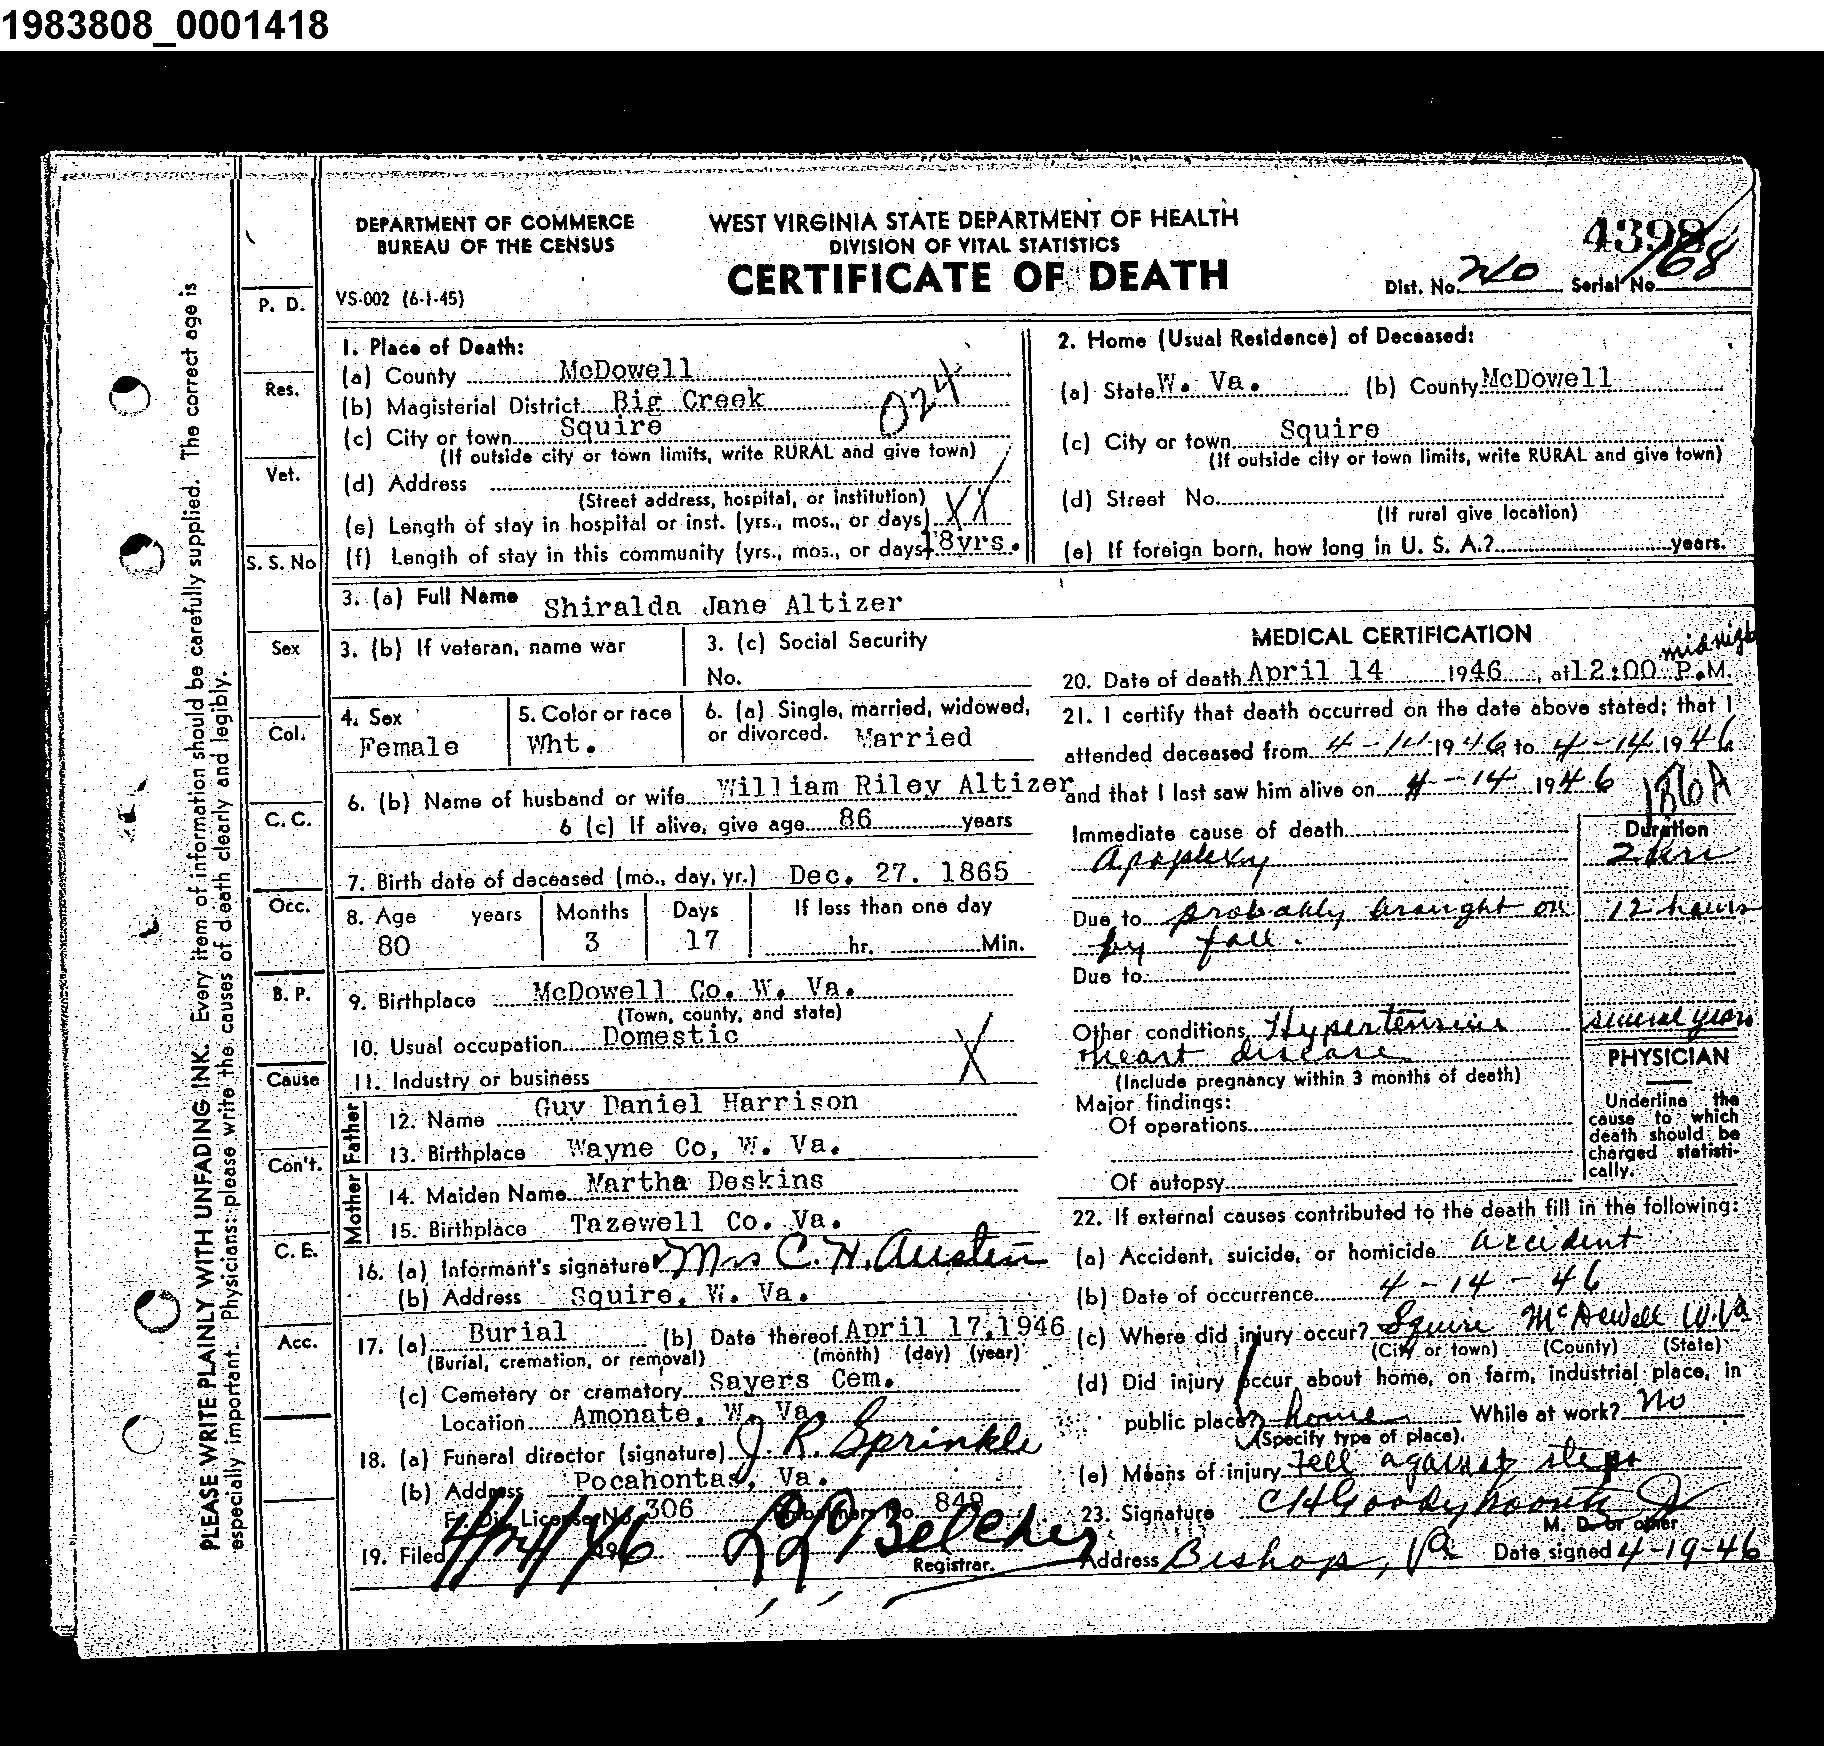 1983808_0001418
DEPARTMENT OF COMMERCE
BUREAU OF THE CENSUS
VS-002 (6-1-45)
WEST VIRGINIA STATE DEPARTMENT OF HEALTH
DIVISION OF VITAL STATISTICS
CERTIFICATE OF DEATH
4398
Dist. No. Serial No. 168
PLEASE WRITE PLAINLY WITH UNFADING INK. Every item of information should be carefully supplied. The correct age is
especially important. Physicians: please write the causes of death clearly and legibly.
P. D.
Res.
Vet.
S. S. No
Sex
Col.
C. C.
Occ.
B. P.
Cause
Con't.
C. E.
Acc.
1. Place of Death:
(a) County McDowell
(b) Magisterial District Big Creek
024
(c) City or town Squire
(If outside city or town limits, write RURAL and give town)
(d) Address
(Street address, hospital, or institution)
(e) Length of stay in hospital or inst. (yrs., mos., or days) XX
(f) Length of stay in this community (yrs., mos., or days) 18yrs.
2. Home (Usual Residence) of Deceased:
(a) State W. Va. (b) County McDowell
(c) City or town Squire
(If outside city or town limits, write RURAL and give town)
(d) Street No.
(If rural give location)
(e) If foreign born, how long in U. S. A.? years.
3. (a) Full Name Shiralda Jane Altizer
3. (b) If veteran, name war
3. (c) Social Security
No.
4. Sex
Female
5. Color or race
Wht.
6. (a) Single, married, widowed,
or divorced. Married
6. (b) Name of husband or wife William Riley Altizer
6 (c) If alive, give age 86 years
7. Birth date of deceased (mo., day, yr.) Dec. 27. 1865
8. Age years Months Days If less than one day
80 3 17 hr. Min.
9. Birthplace McDowell Co. W. Va.
(Town, county, and state)
10. Usual occupation Domestic
X
11. Industry or business
Father
12. Name Guy Daniel Harrison
13. Birthplace Wayne Co, W. Va.
Mother
14. Maiden Name Martha Deskins
15. Birthplace Tazewell Co. Va.
16. (a) Informant's signature Mrs C. H. Austin
(b) Address Squire, W. Va.
17. (a) Burial (b) Date thereof April 17,1946
(Burial, cremation, or removal) (month) (day) (year)
(c) Cemetery or crematory Sayers Cem.
Location Amonate, W. Va.
18. (a) Funeral director (signature) J. R. Sprinkle
(b) Address Pocahontas, Va.
License No. 306 849
19. Filed 1946 Belcher
Registrar.
MEDICAL CERTIFICATION
midnight
20. Date of death April 14 1946, at 12:00 P.M.
21. I certify that death occurred on the date above stated; that I
attended deceased from 4-14 1946 to 4-14 1946
and that I last saw him alive on 4-14 1946
186A
Immediate cause of death
Duration
Apoplexy 2
Due to probably brought on 12 hours
by fall.
Due to
Other conditions Hypertensive several years
heart disease
(Include pregnancy within 3 months of death)
Major findings:
Of operations
Of autopsy
PHYSICIAN
Underline the
cause to which
death should be
charged statisti-
cally.
22. If external causes contributed to the death fill in the following:
(a) Accident, suicide, or homicide accident
(b) Date of occurrence 4-14-46
(c) Where did injury occur? Squire McDowell W.Va
(City or town) (County) (State)
(d) Did injury occur about home, on farm, industrial place, in
public place? home While at work? No
(Specify type of place)
(e) Means of injury Fell against steps
23. Signature CH Goodykoontz Jr
M. D. or other
Address Bishop, Va Date signed 4-19-46